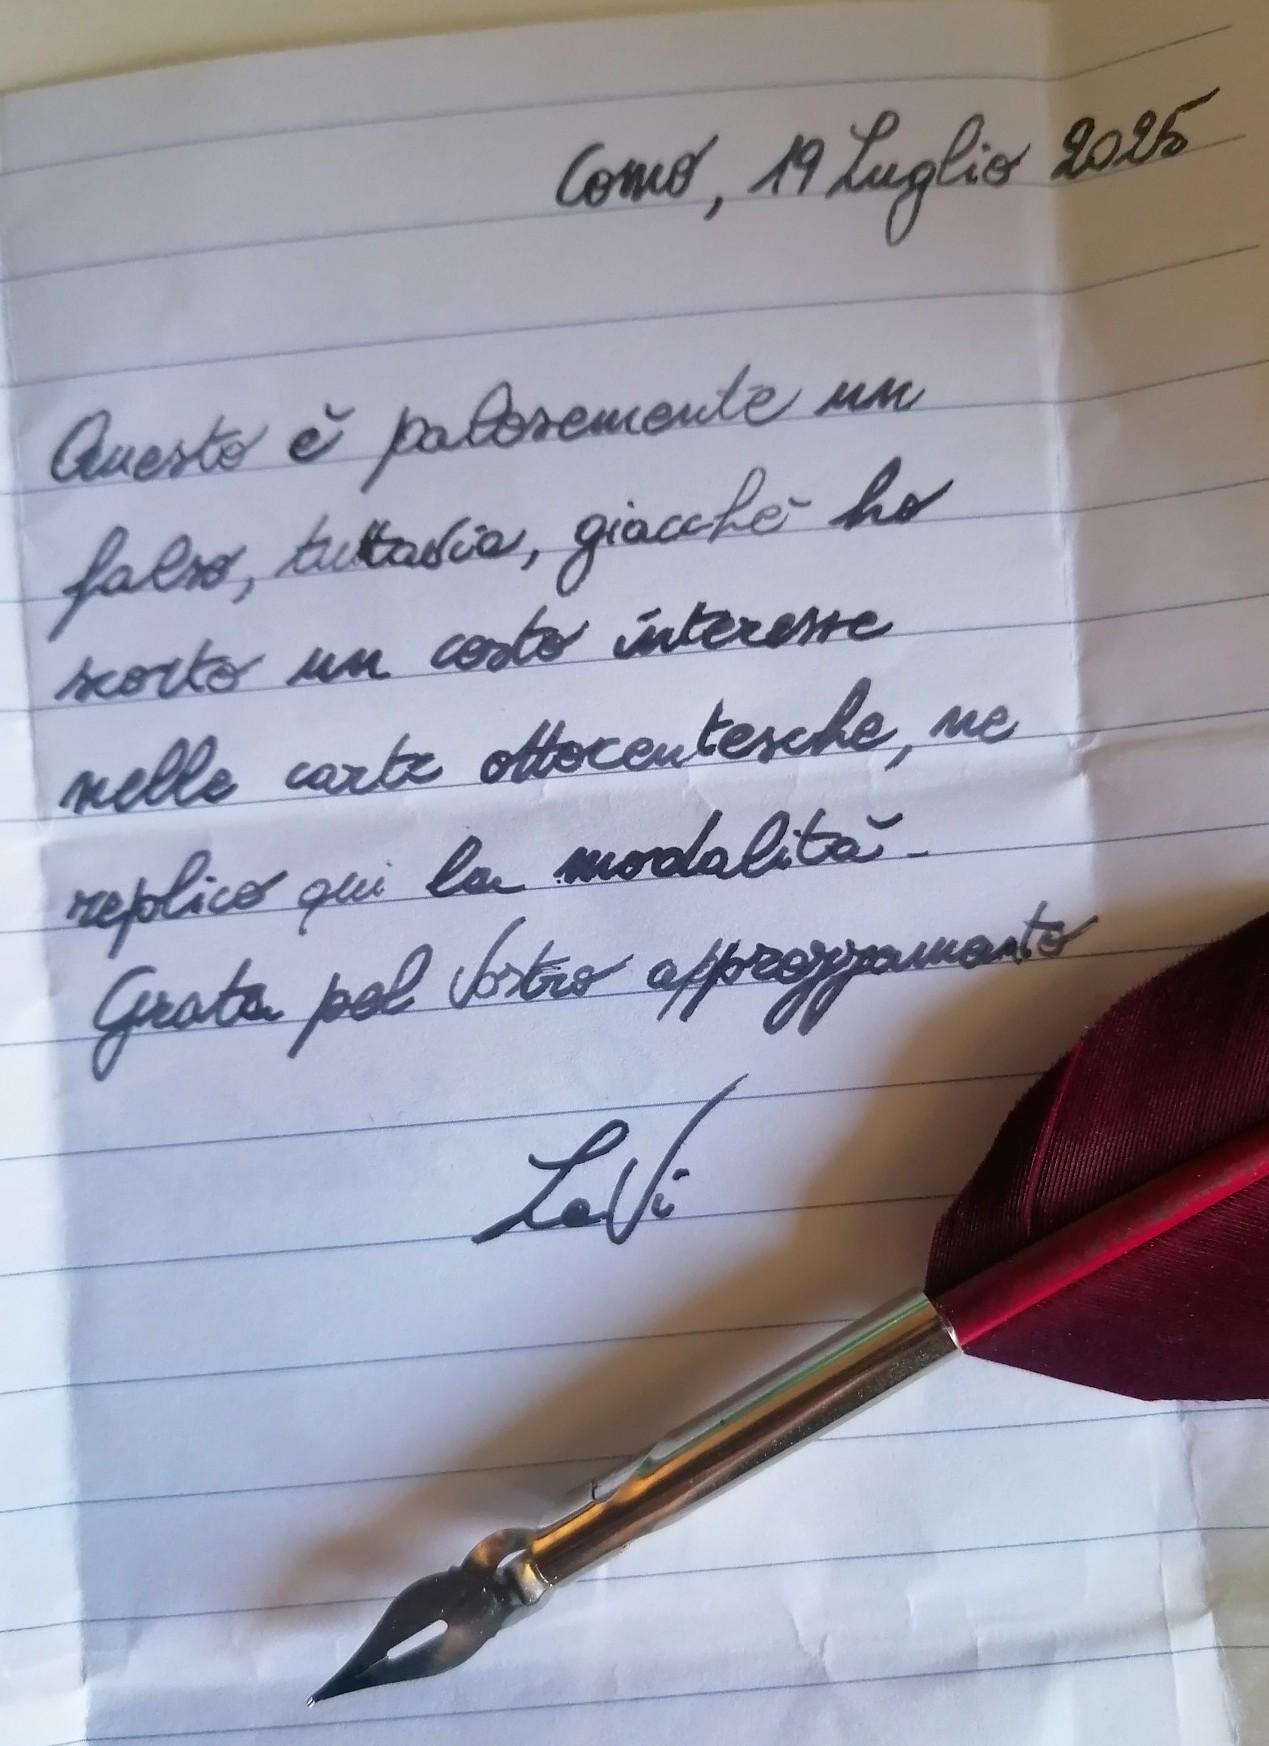 Como, 19 Luglio 2025
Questo è palesemente un
falso, tuttavia, giacché ho
scorto un certo interesse
nelle carte ottocentesche, ne
replico qui la modalità.
Grata pel Vostro apprezzamento
LaVi